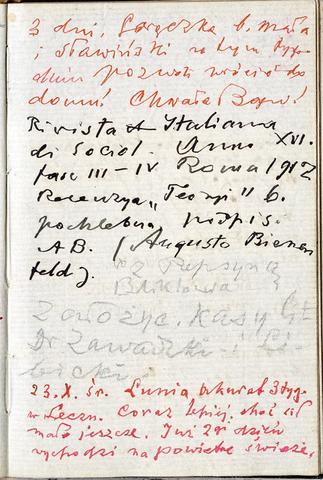 3 dni, Gorączka b. mała
i Sławiński na tym
pozwoli wrócić do
domu! Chwała Bogu!
Rivista Italiana
di Sociol. Anno XVI.
fasc III-IV Roma 1912
Recenzya „Teoryi" b.
pochlebna podpis.
AB. (Augusto Bianen
feld).
z Pepsyną
Założyć. Kasy
Dr Zawadzki i
23.X. śr. Lunia 3 tyg.
w Leczn. Coraz lepiej, choć sił
mało jeszcze. Już 2gi dzień
wychodzi na powietrze świeże.